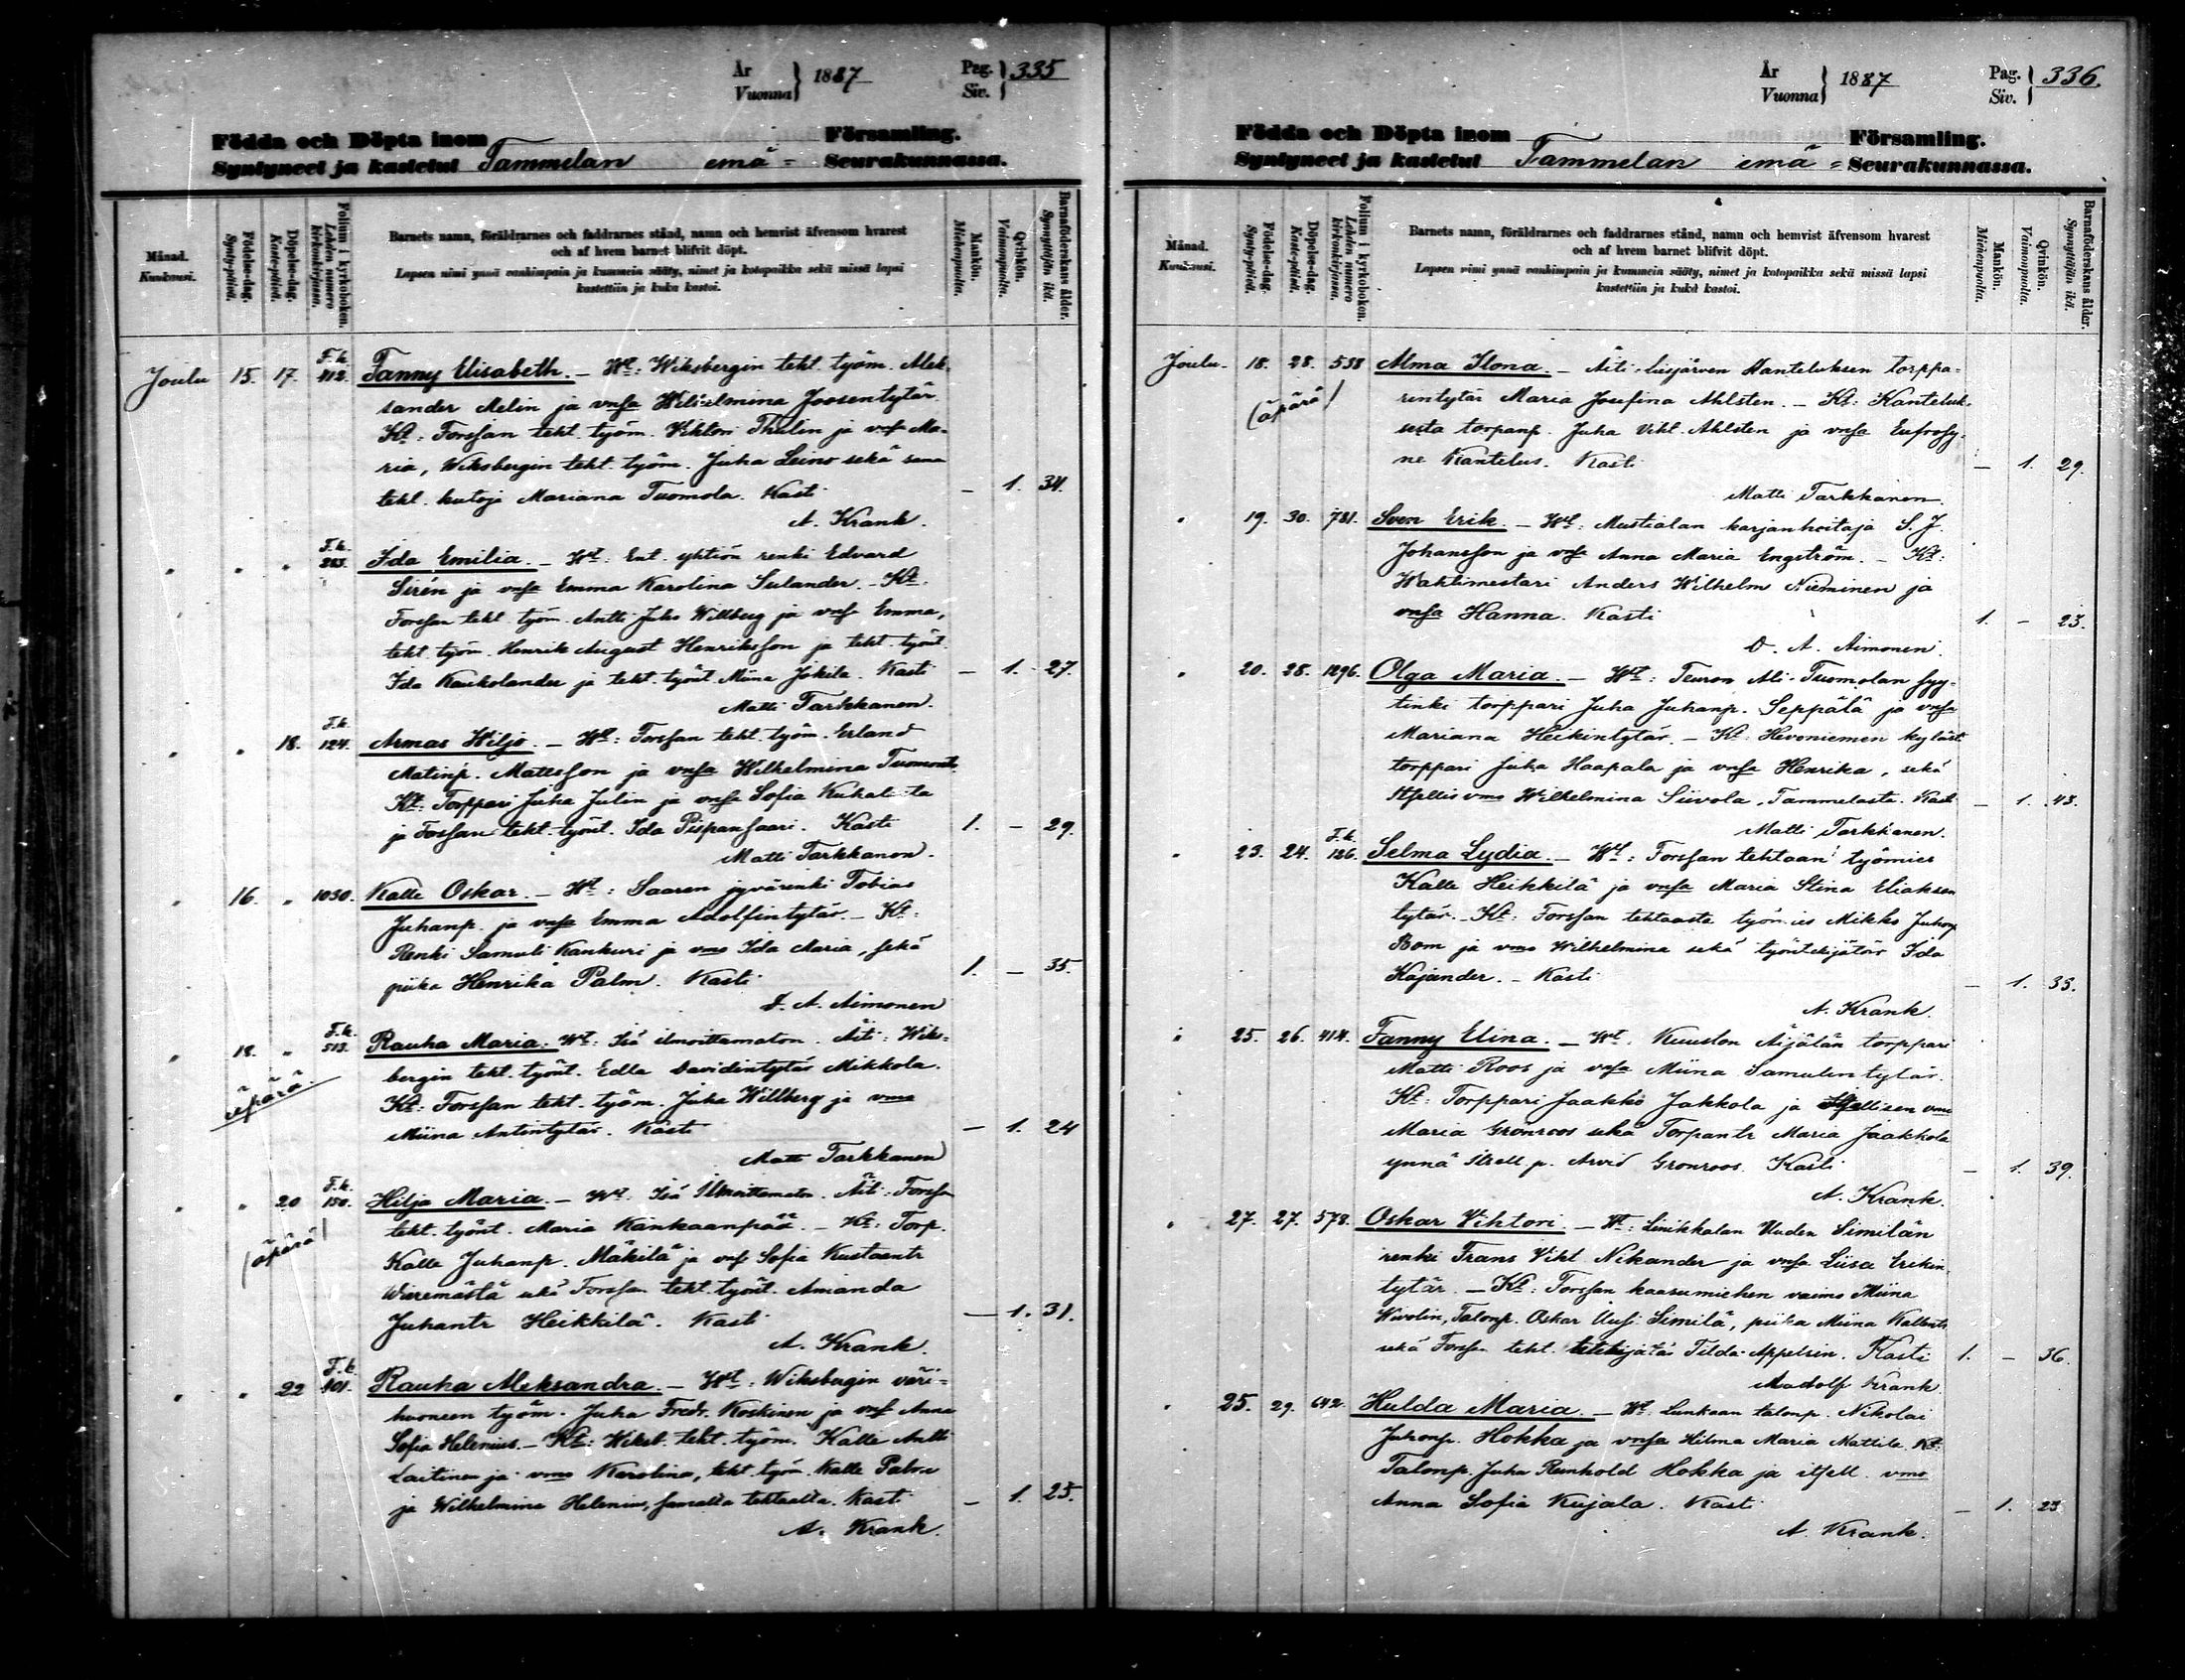 År
Vuonna } 1887
Pag.
Siv. } 335
Födda och Döpta inom
Syntyneet ja kastetut Tammelan emä=
Församling.
Seurakunnassa.
Månad. Kuukausi.
Födelse-dag. Synty-päivä.
Döpelse-dag. Kaste-päivä.
Folium i kyrkoboken. Lehden numero kirkonkirjassa.
Barnets namn, föräldrarnes och faddrarnes stånd, namn och hemvist äfvensom hvarest
och af hvem barnet blifvit döpt.
Lapsen nimi ynnä vanhimpain ja kummein sääty, nimet ja kotopaikka sekä missä lapsi
kastettiin ja kuka kastoi.
Mankön. Miehenpuolta.
Qvinkön. Vaimonpuolta.
Barnaföderskans ålder. Synnyttäjän ikä.
Joulu 15. 17. F.k. 412. Fanny Elisabeth. — Wt: Wiksbergin teht. työm. Alek-
sander Melin ja vmsa Wilhelmina Joosentytär.
Kt: Forssan teht. työm. Viktori Thulin ja vmsa Ma-
ria, Wiksbergin teht. työm. Juha Leino sekä sama
teht. kutoja Mariana Tuomola. Kasti — 1. 34.
A. Krank.
" " " F.k. 263. Ida Emilia. — Wt: Ent. yhtiön renki Edvard
Sirén ja vmsa Emma Karolina Sulander. — Kt:
Forssan teht. työm. Antti Juho Willberg ja vmsa Emma,
teht. työm. Henrik August Henriksson ja teht. työnt.
Ida Kaukolander ja teht. työnt. Miina Jokila. Kasti — 1. 27.
Matti Tarkkanen.
" " 18. F.k. 124. Armas Wiljo. — Wt: Forssan teht. työm. Erland
Matinp. Mattsson ja vmsa Wilhelmina Tuomont.
Kt: Torppari Juha Julin ja vmsa Sofia Kuhalata
ja Forssan teht. työnt. Ida Piispansaari. Kasti 1. — 29.
Matti Tarkkanen.
" 16. " 1030. Kalle Oskar. — Wt: Saaren jyvärenki Tobias
Juhanp. ja vmsa Emma Adolfintytär. — Kt:
Renki Samuli Kankuri ja vmo Ida Maria, sekä
piika Henrika Palm. Kasti 1. — 35.
D. A. Aimonen
" 18. " F.k. 513. Rauha Maria. Wt: Isä ilmoittamaton. Äiti: Wiks-
äpärä. bergin teht. työnt. Edla Davidintytär Mikkola.
Kt: Forssan teht. työm. Juha Willberg ja vmo
Miina Antintytär. Kasti — 1. 24
Matti Tarkkanen
" " 20 F.k. 150. Hilja Maria. — Wt: Isä Ilmoittamaton. Äiti: Forssan
(äpärä) teht. työnt. Maria Kankaanpää. — Kt: Torp.
Kalle Juhanp. Mäkilä ja vmsa Sofia Kustaantr
Wieremästä sekä Forssan teht. työnt. Amanda
Juhantr Heikkilä. Kasti — 1. 31.
A. Krank.
" " 22 F.k. 401. Rauha Aleksandra. — Wt: Wiksbergin väri-
huoneen työm. Juha Fredr. Koskinen ja vmsa Anna
Sofia Helenius. — Kt: Wiksb. teht. työm. Kalle Antti
Laitinen ja vmo Karolina, teht. työm. Kalle
ja Wilhelmina Helenius, samalta tehtaalta. Kasti — 1. 25.
A. Krank.
År
Vuonna } 1887
Pag.
Siv. } 336.
Födda och Döpta inom
Syntyneet ja kastetut Tammelan emä=
Församling.
Seurakunnassa.
Månad. Kuukausi.
Födelse-dag. Synty-päivä.
Döpelse-dag. Kaste-päivä.
Folium i kyrkoboken. Lehden numero kirkonkirjassa.
Barnets namn, föräldrarnes och faddrarnes stånd, namn och hemvist äfvensom hvarest
och af hvem barnet blifvit döpt.
Lapsen nimi ynnä vanhimpain ja kummein sääty, nimet ja kotopaikka sekä missä lapsi
kastettiin ja kuka kastoi.
Mankön. Miehenpuolta.
Qvinkön. Vaimonpuolta.
Barnaföderskans ålder. Synnyttäjän ikä.
Joulu. 18. 28. 538 Alma Ilona. — Äiti: Liesjärven Kanteluksen torppa-
(äpärä) rintytär Maria Josefina Ahlsten. — Kt: Kanteluk-
sesta torpanp. Juha Vikt. Ahlsten ja vmsa Eufrosy-
ne Kantelus. Kasti — 1. 29.
Matti Tarkkanen.
" 19. 30. 781. Sven Erik. — Wt: Mustialan karjanhoitaja S. J.
Johansson ja vmsa Anna Maria Engström. — Kt:
Wahtimestari Anders Wilhelm Nieminen ja
vmsa Hanna. Kasti 1. — 23.
D. A. Aimonen.
" 20. 28. 1296. Olga Maria. — Wt: Teuron Ali-Tuomolan syy-
tinki torppari Juha Juhanp. Seppälä ja vmsa
Mariana Heikintytär. — Kt: Hevoniemen kyläst.
torppari Juha Haapala ja vmsa Henrika, sekä
Itsellis vmo Wilhelmina Siivola, Tammelasta. Kasti — 1. 43.
Matti Tarkkanen.
" 23. 24. F.k. 126. Selma Lydia. — Wt: Forssan tehtaan työmies
Kalle Heikkilä ja vmsa Maria Stina Eliaksen
tytär. — Kt: Forssan tehtaasta työmies Mikko Juhanp
Bom ja vmo Wilhelmina sekä työntekijätär Ida
Kajander. — Kasti — 1. 33.
A. Krank.
" 25. 26. 414. Fanny Elina. — Wt. Kuuslon Äijälän torppari
Matti Roos ja vmsa Miina Samulintytär.
Kt: Torppari Jaakko Jakkola ja Itsellisen vmo
Maria Grönroos sekä Torpantr Maria Jaakkola
ynnä itsell. p. Arvid Grönroos. Kasti — 1. 39.
A. Krank.
" 27. 27. 578. Oskar Vihtori. — Wt: Linikkalan Uuden Similän
renki Frans Vikt. Nikander ja vmsa Liisa Erikin-
tytär. — Kt: Forssan kaasumiehen vaimo Miina
Wivolin, Talonp. Oskar Uusi Similä, piika Miina Kallentr
sekä Forssan teht. tekijätär Tilda Appelsin. Kasti 1. — 36.
Aadolf Krank
" 25. 29. 642. Hulda Maria. — Wt. Lunkaan talonp. Nikolai
Juhonp. Hokka ja vmsa Hilma Maria Mattila. Kt:
Talonp. Juha Reinhold Hokka ja itsell. vmo
Anna Sofia Kujala. Kasti — 1. 23
A. Krank.